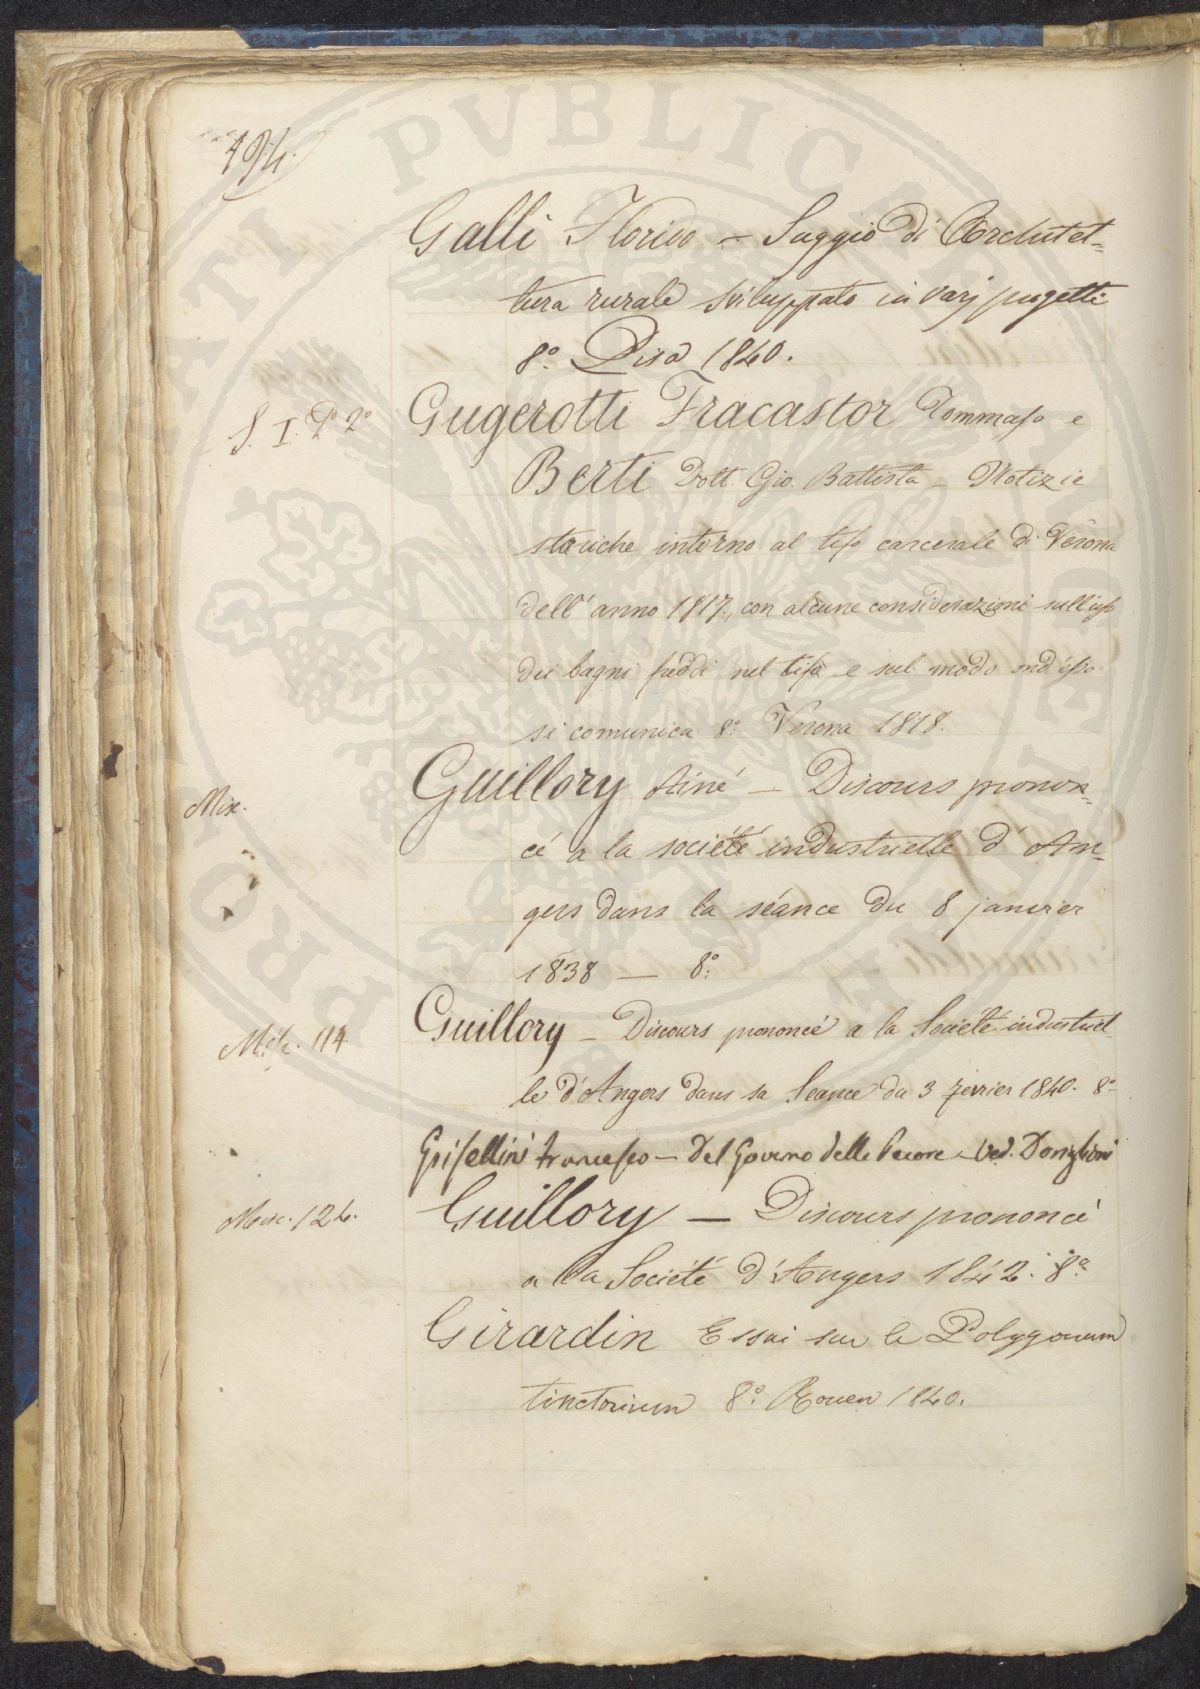 194.
Galli Florido – Saggio di Architet=
tura rurale sviluppato in varj progetti
8.º Pisa 1840.
S. I. P.º 2º
Gugerotti Fracastor Tommaso e
Berti Dott. Gio. Battista – Notizie
storiche intorno al tifo carcerale di Verona
dell' anno 1817, con alcune considerazioni sull'uso
dei bagni freddi nel tifo e sul modo ond'esso
si comunica 8.º Verona 1818.
Misc.
Guillory Ainé – Discours pronon=
cé a la société industrielle d' An=
gers dans la séance du 8 janvier
1838 — 8.º
Misc. 114
Guillory – Discours prononcé a la Société industriel
le d'Angers dans sa Seance du 3 fevrier 1840. 8.º
Griselini Francesco – Del Governo delle Pecore – Ved.
Misc. 124.
Guillory — Discours prononcé
a la Société d'Angers 1842. 8.º
Girardin Essai sur le Polygonum
tinctorium 8.º Rouen 1840.
PROVINCIAE PUBLICAE